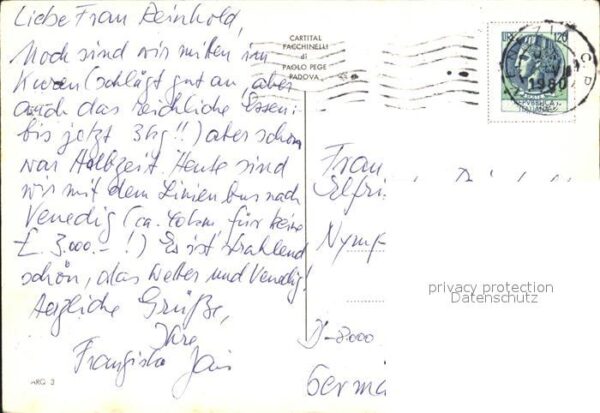 Liebe Frau Reinhold,
Noch sind wir mitten im
Kuren (schlägt gut an, aber
auch das reichliche Essen:
bis jetzt 3 kg!!) aber schon
war Halbzeit. Heute sind
wir mit dem Linienbus nach
Venedig (ca. 40 km für keine
£. 3.000.- !) Es ist strahlend
schön, das Wetter und Venedig!
Herzliche Grüße,
Ihre
Franziska
ARG 3
CARTITAL
FACCHINELLI
di
PAOLO PEGE
PADOVA
LIRE 120
1980
Frau
Elfri
Nymp
privacy protection
Datenschutz
D-8000
Germa